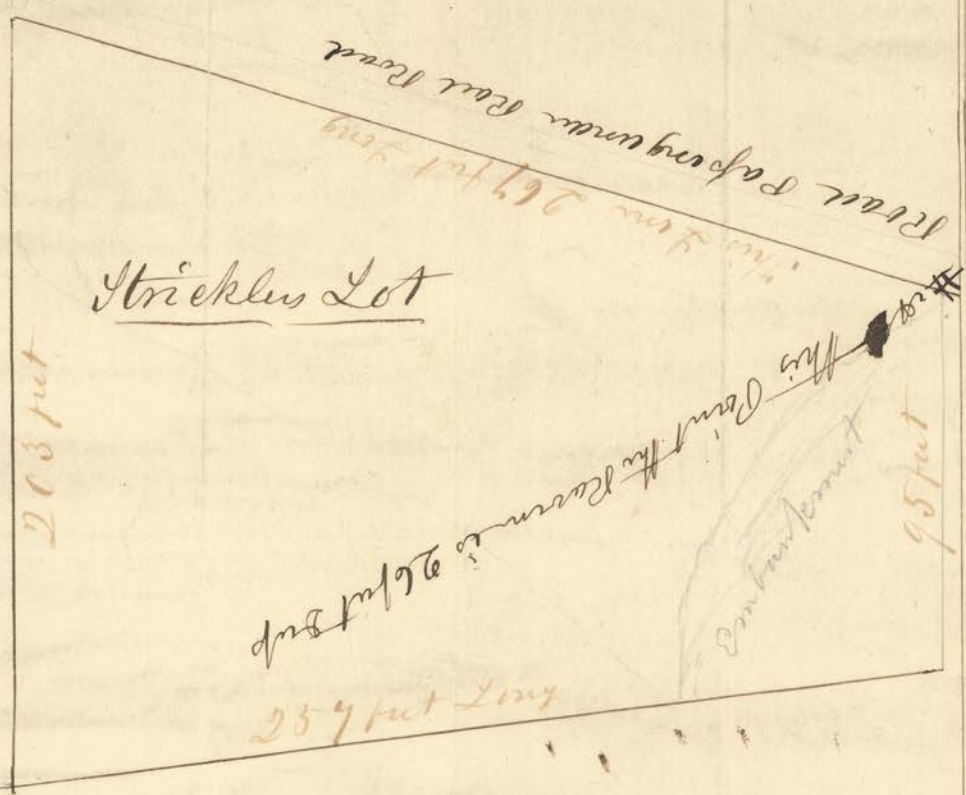 Road Passing under Rail Road
This Line 267 feet Long
Stricklers Lot
203 feet
At this Point the Ravine is 26 feet Deep
Embankment
95 feet
237 feet Long